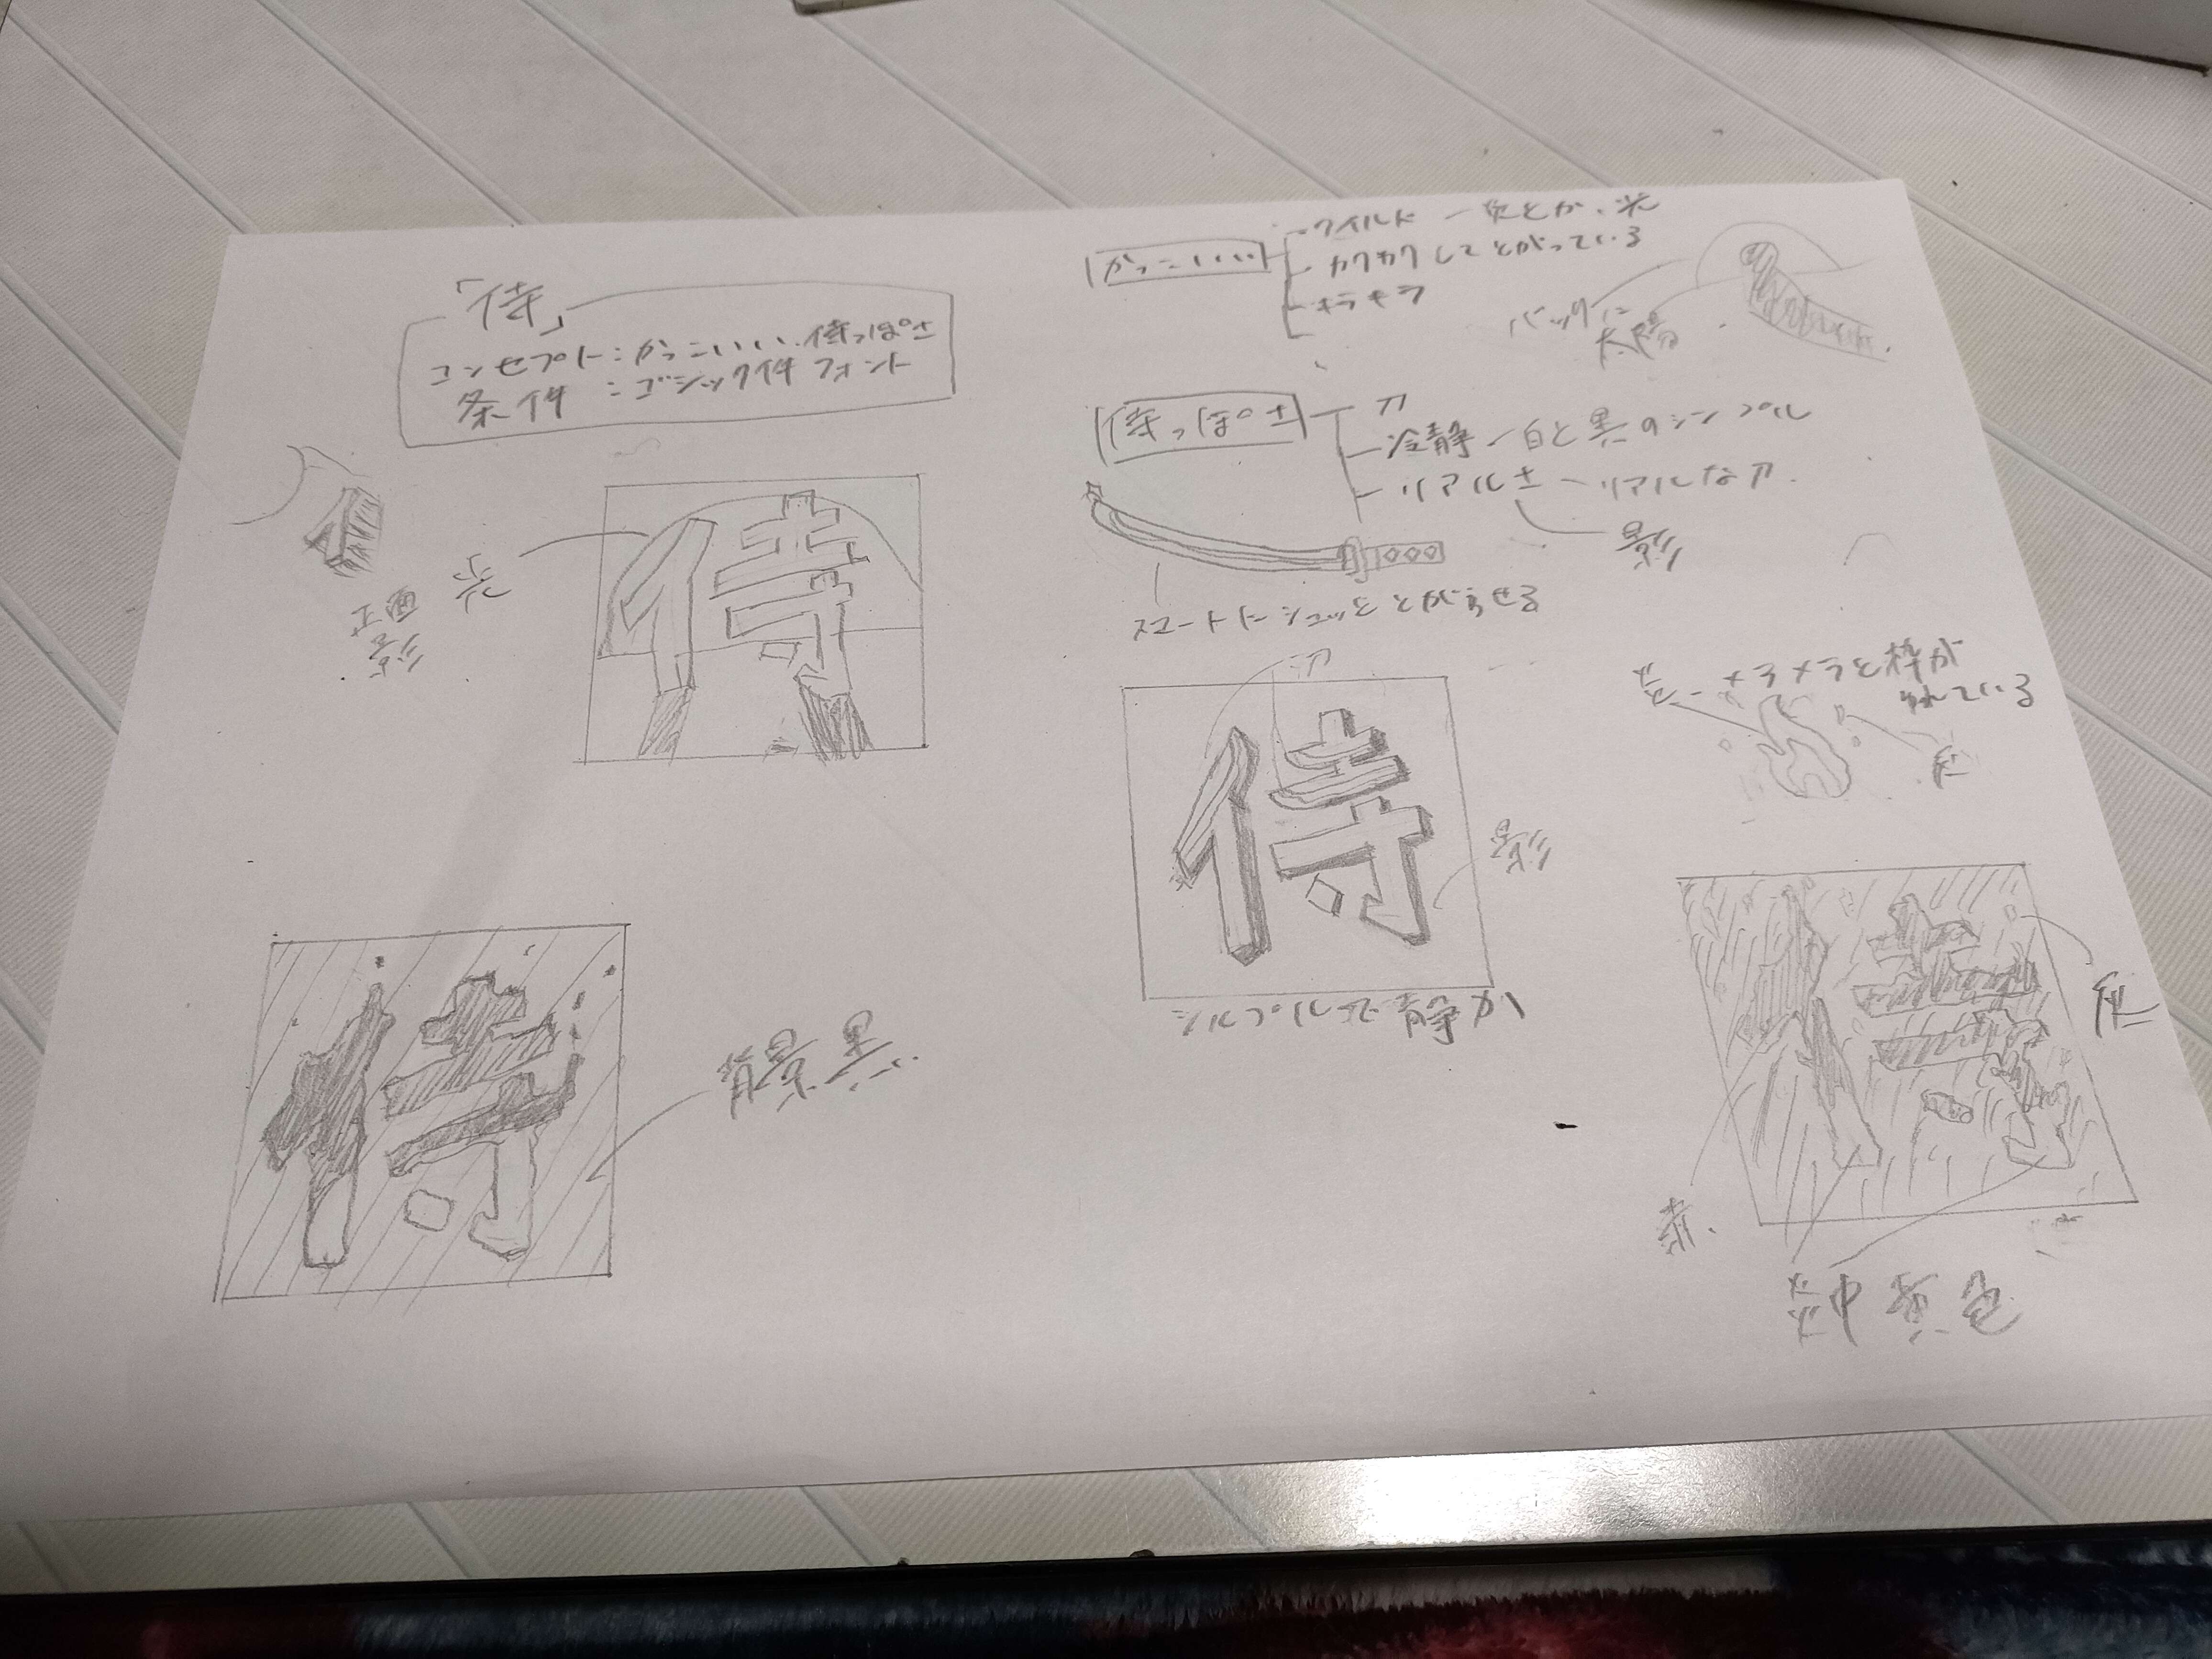 「侍」
コンセプト：かっこいい、侍っぽさ
条件：ゴシック体フォント
かっこいい
ワイルド－炎とか、光
カクカクしてとがっている
キラキラ
バックに
太陽
侍っぽさ
刀
冷静－白と黒のシンプル
リアルさ－リアルな刀
影
スマートにシュッととがらせる
正面
影
光
侍
刀
侍
影
シンプルで静か
炎－メラメラと枠が
揺れている
火
侍
背景黒
侍
赤
炎中黄色